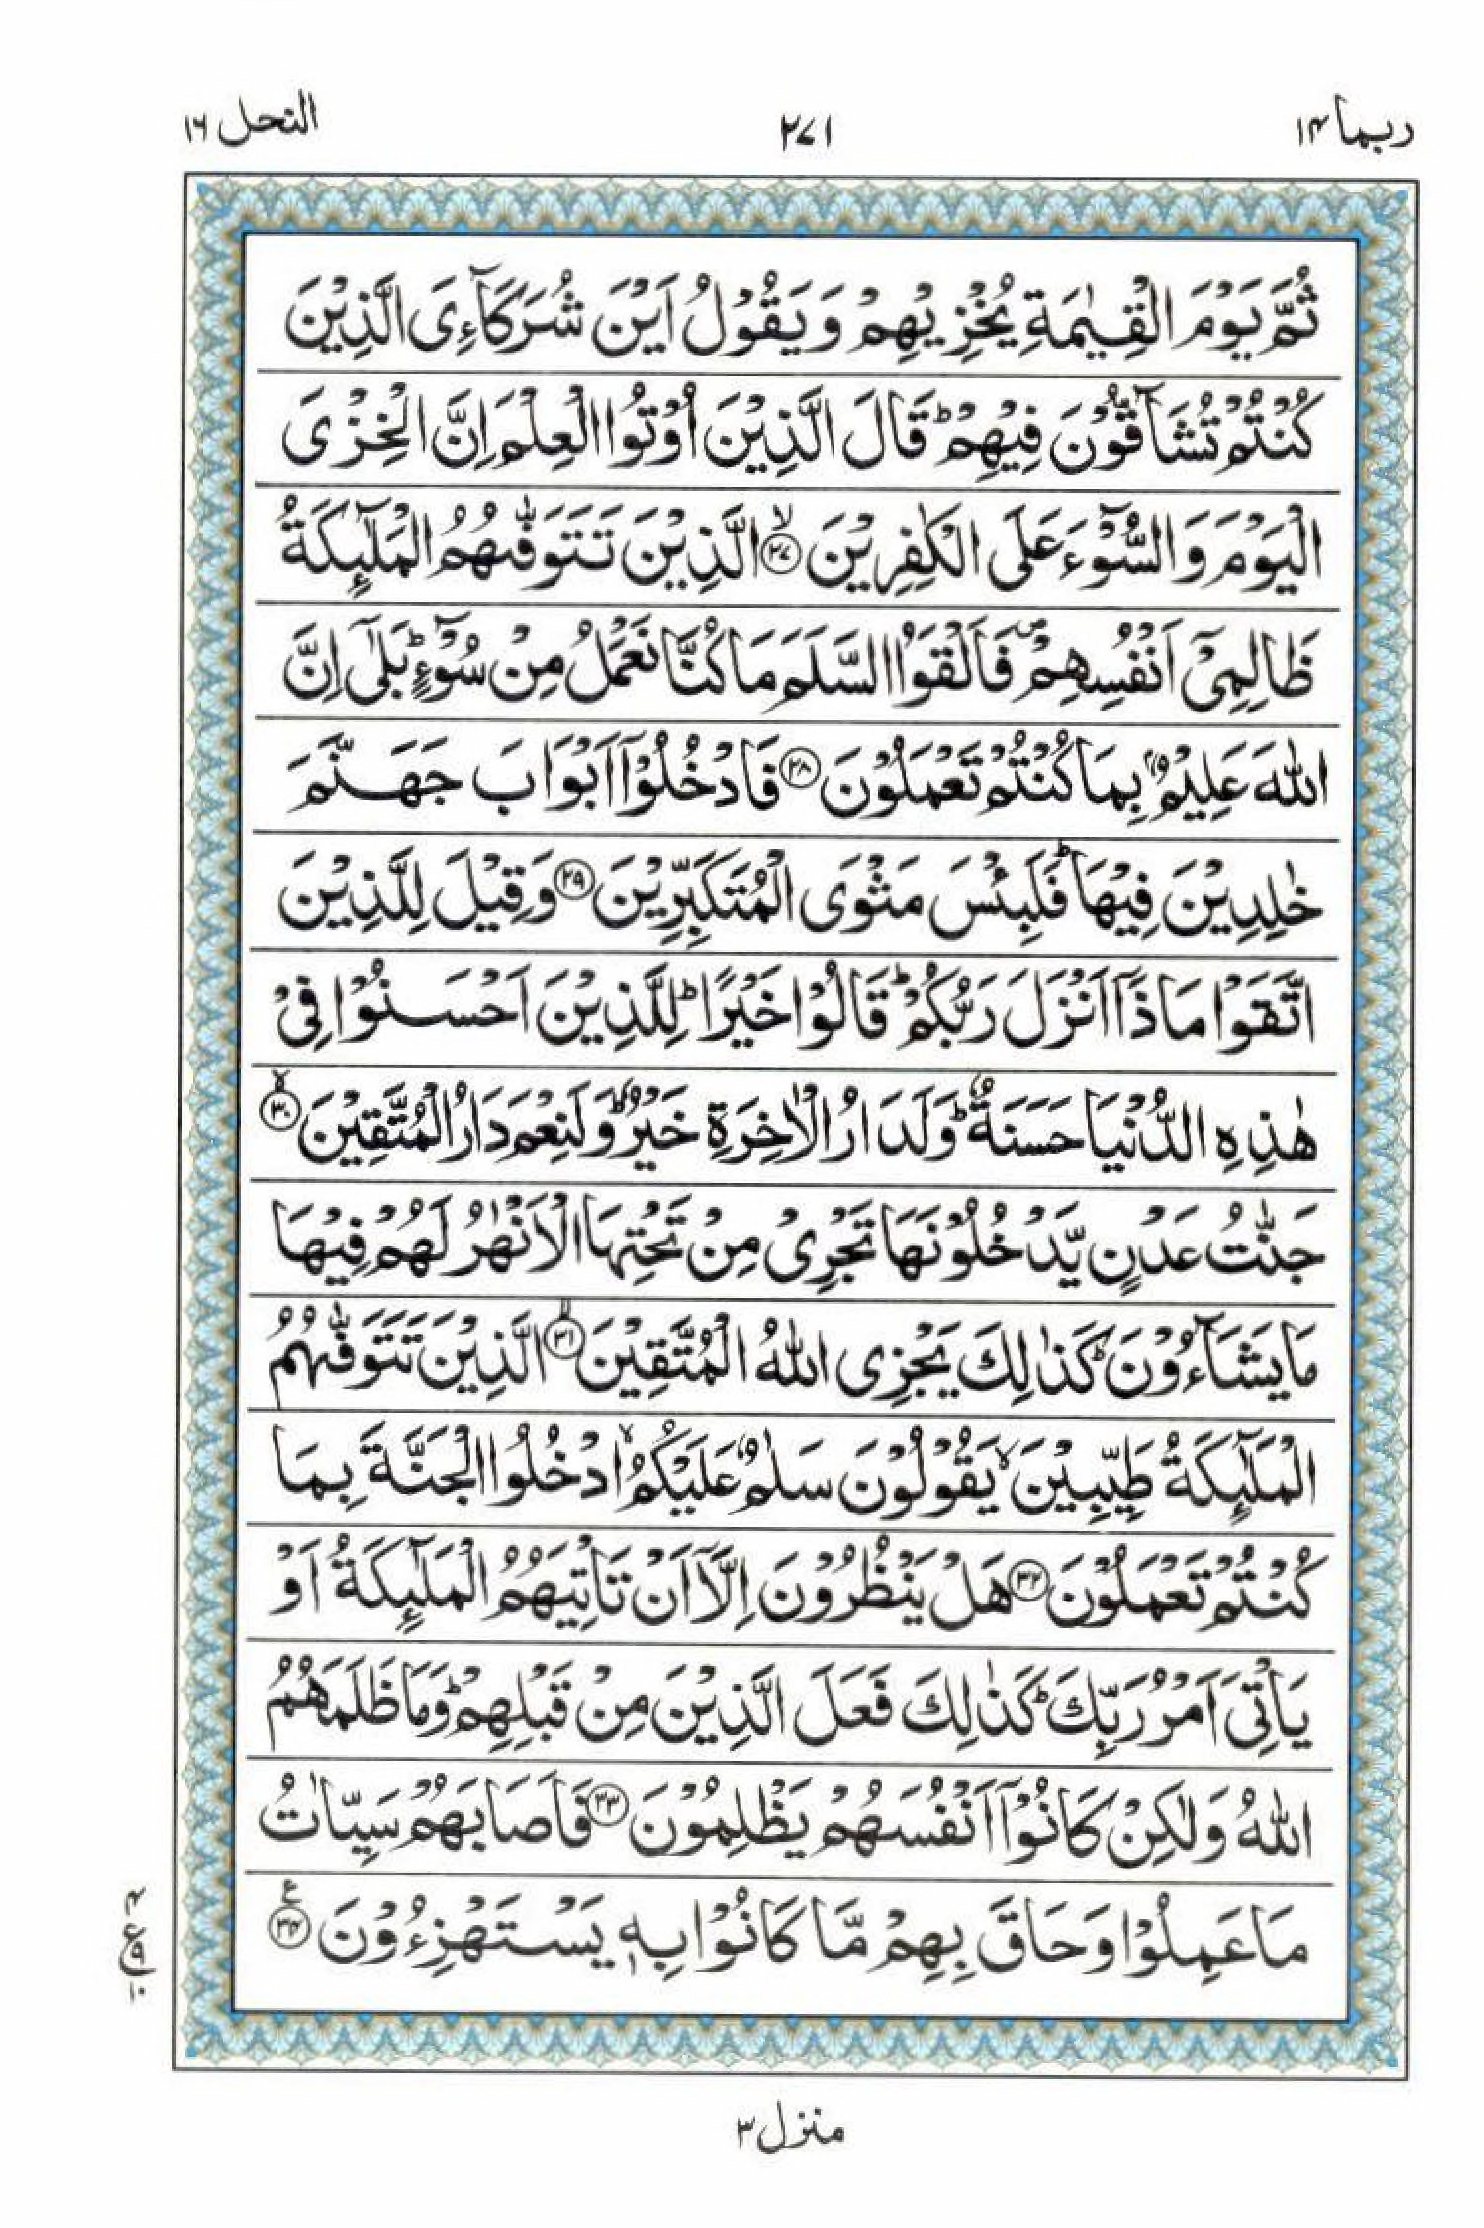 ربما ۱۴
۲۷۱
النحل ۱۶
ثُمَّ يَوْمَ الْقِيٰمَةِ يُخْزِيْهِمْ وَ يَقُوْلُ اَيْنَ شُرَكَآءِيَ الَّذِيْنَ
كُنْتُمْ تُشَآقُّوْنَ فِيْهِمْ ؕ قَالَ الَّذِيْنَ اُوْتُوا الْعِلْمَ اِنَّ الْخِزْيَ
الْيَوْمَ وَ السُّوْٓءَ عَلَى الْكٰفِرِيْنَ ۙ۲۷ الَّذِيْنَ تَتَوَفّٰىهُمُ الْمَلٰٓئِكَةُ
ظَالِمِيْۤ اَنْفُسِهِمْ ۪ فَاَلْقَوُا السَّلَمَ مَا كُنَّا نَعْمَلُ مِنْ سُوْٓءٍ ؕ بَلٰۤى اِنَّ
اللّٰهَ عَلِيْمٌۢ بِمَا كُنْتُمْ تَعْمَلُوْنَ ۲۸ فَادْخُلُوْۤا اَبْوَابَ جَهَنَّمَ
خٰلِدِيْنَ فِيْهَا ؕ فَلَبِئْسَ مَثْوَى الْمُتَكَبِّرِيْنَ ۲۹ وَ قِيْلَ لِلَّذِيْنَ
اتَّقَوْا مَا ذَاۤ اَنْزَلَ رَبُّكُمْ ؕ قَالُوْا خَيْرًا ؕ لِلَّذِيْنَ اَحْسَنُوْا فِيْ
هٰذِهِ الدُّنْيَا حَسَنَةٌ ؕ وَ لَدَارُ الْاٰخِرَةِ خَيْرٌ ؕ وَ لَنِعْمَ دَارُ الْمُتَّقِيْنَ ۙ۳۰
جَنّٰتُ عَدْنٍ يَّدْخُلُوْنَهَا تَجْرِيْ مِنْ تَحْتِهَا الْاَنْهٰرُ لَهُمْ فِيْهَا
مَا يَشَآءُوْنَ ؕ كَذٰلِكَ يَجْزِي اللّٰهُ الْمُتَّقِيْنَ ۙ۳۱ الَّذِيْنَ تَتَوَفّٰىهُمُ
الْمَلٰٓئِكَةُ طَيِّبِيْنَ ۙ يَقُوْلُوْنَ سَلٰمٌ عَلَيْكُمُ ۙ ادْخُلُوا الْجَنَّةَ بِمَا
كُنْتُمْ تَعْمَلُوْنَ ۳۲ هَلْ يَنْظُرُوْنَ اِلَّاۤ اَنْ تَاْتِيَهُمُ الْمَلٰٓئِكَةُ اَوْ
يَاْتِيَ اَمْرُ رَبِّكَ ؕ كَذٰلِكَ فَعَلَ الَّذِيْنَ مِنْ قَبْلِهِمْ ؕ وَمَا ظَلَمَهُمُ
اللّٰهُ وَلٰكِنْ كَانُوْۤا اَنْفُسَهُمْ يَظْلِمُوْنَ ۳۳ فَاَصَابَهُمْ سَيِّاٰتُ
مَا عَمِلُوْا وَ حَاقَ بِهِمْ مَّا كَانُوْا بِهٖ يَسْتَهْزِءُوْنَ ۳۴ ع
۴
ع ۹
۱۰
منزل ۳